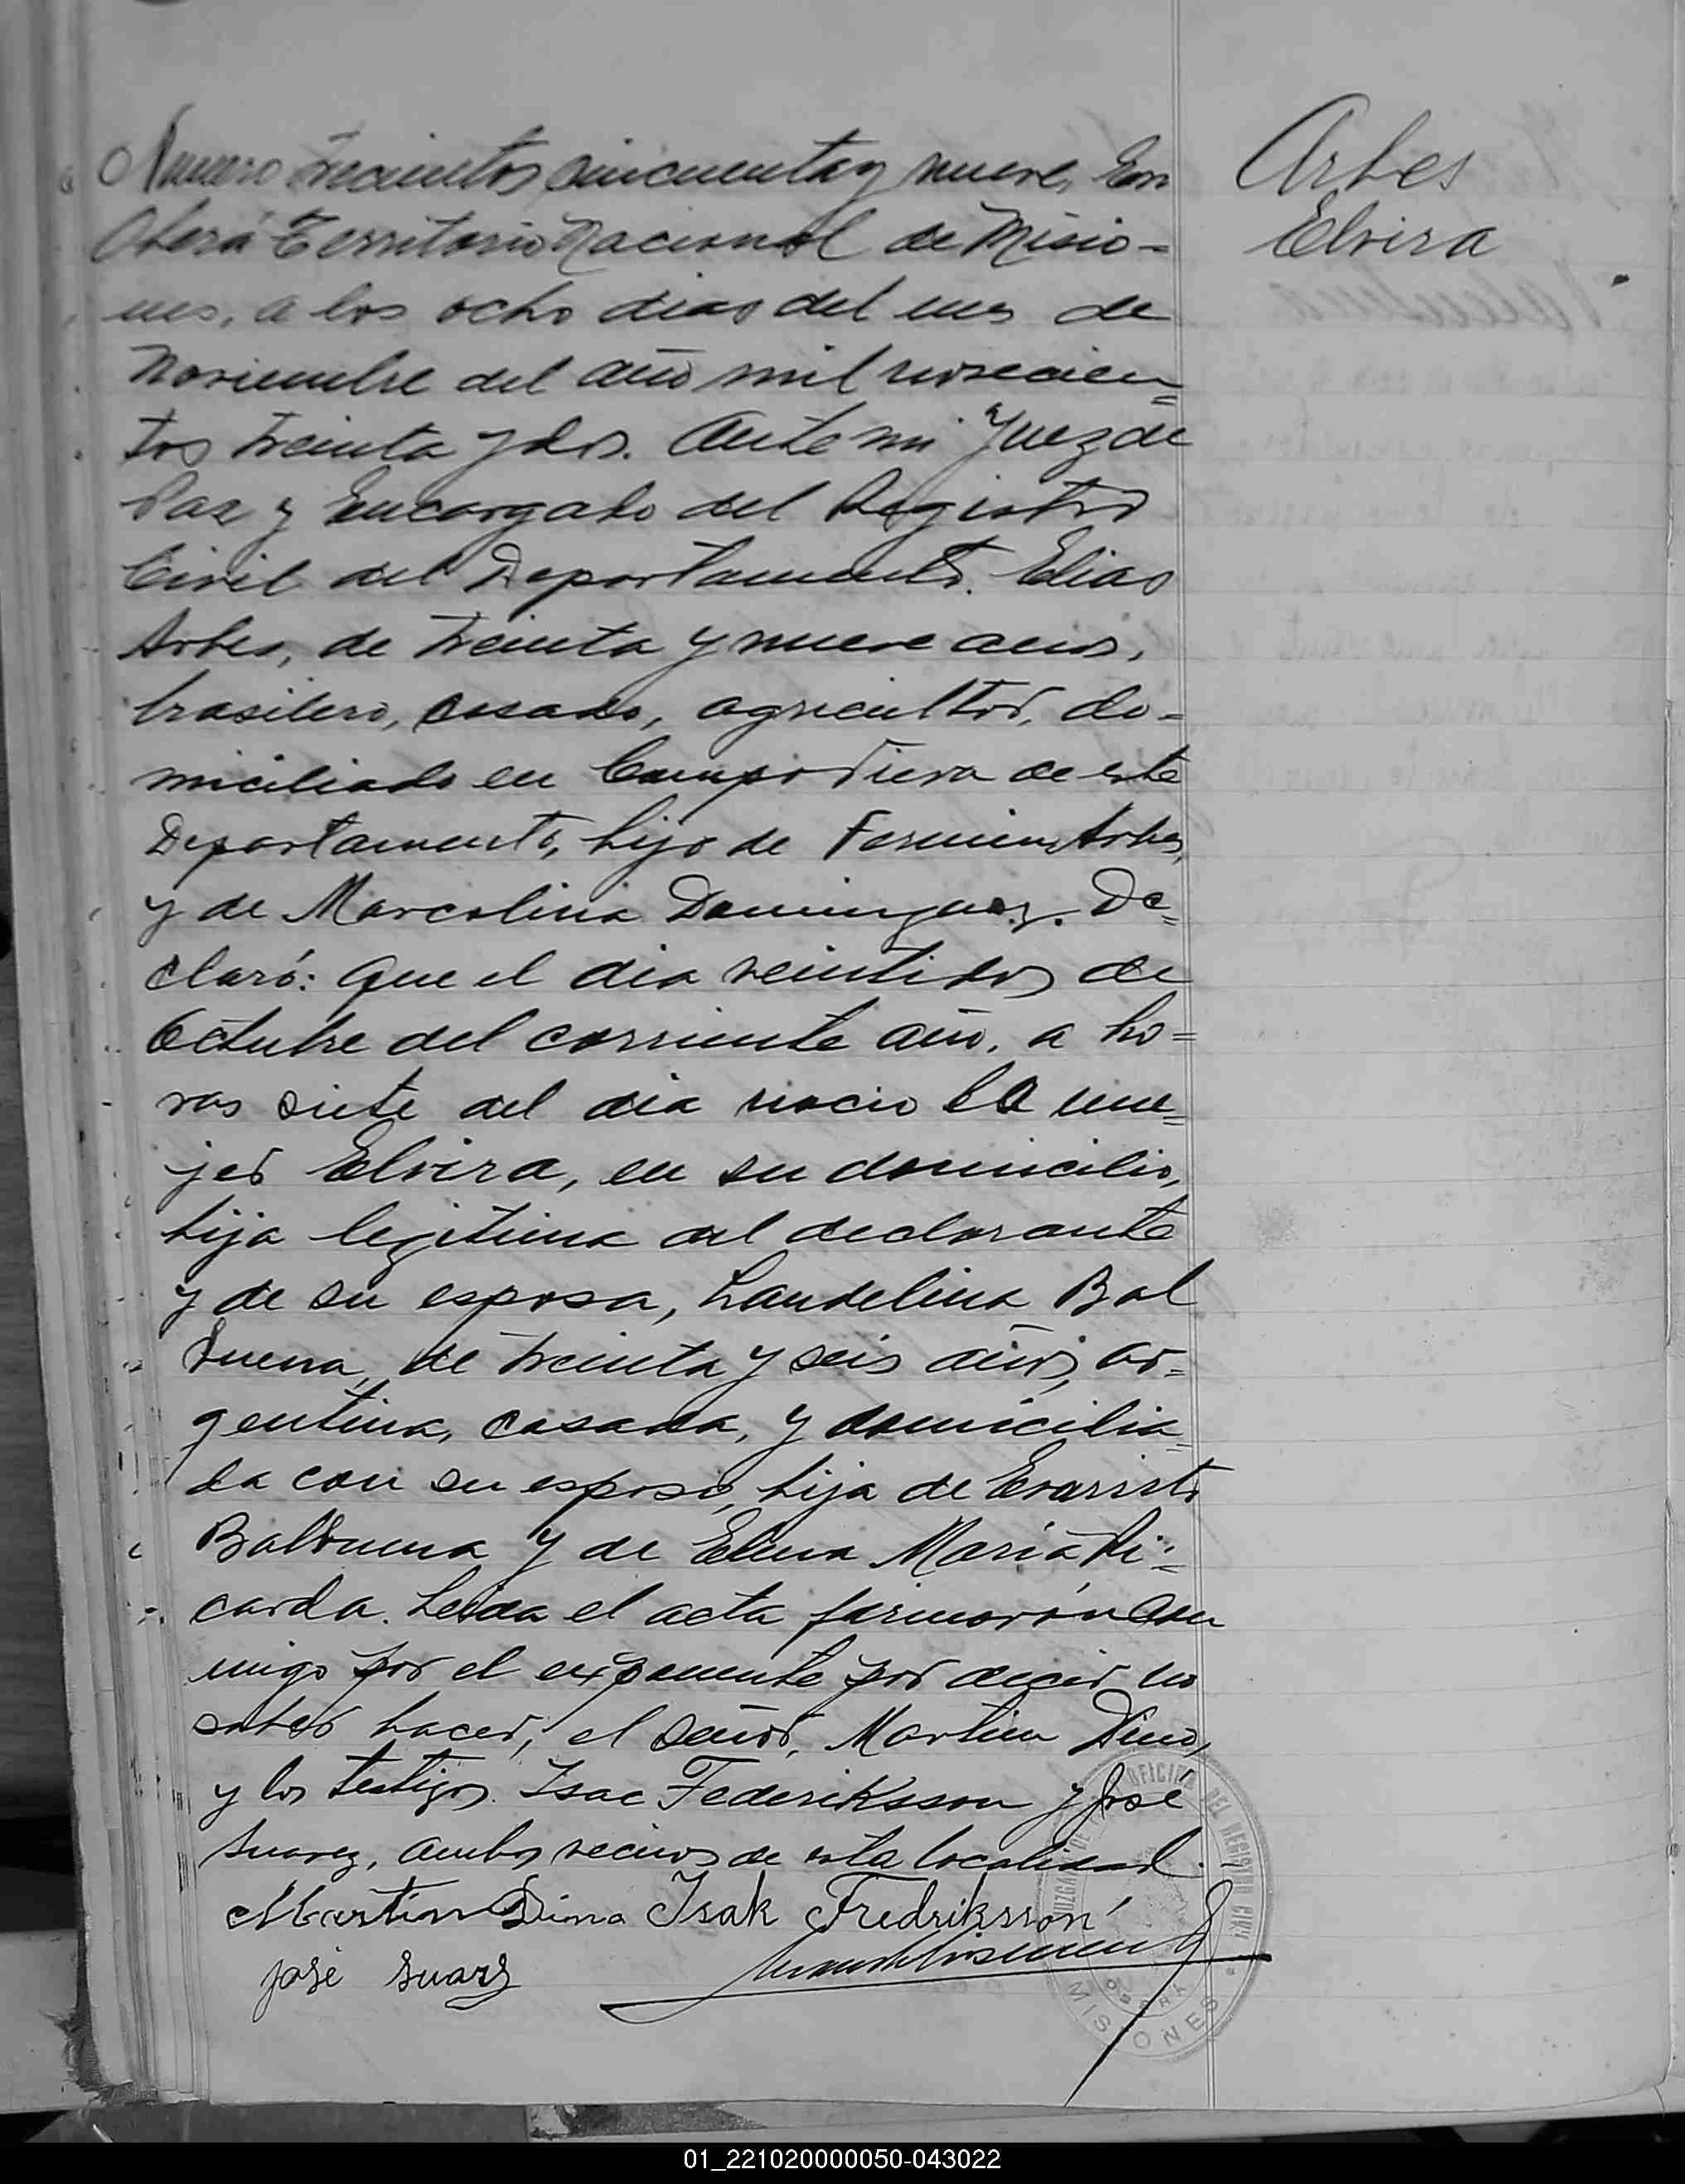 Numero trecientos cincuenta y nueve, En
Oberá Territorio Nacional de Misio=
nes, a los ocho dias del mes de
Noviembre del año mil novecien=
tos treinta y dos. Ante mi Juez de
Paz y Encargado del Registro
Civil del Departamento. Elias
Arbes, de treinta y nueve años,
brasilero, casado, agricultor, do=
miciliado en Campo Viera de este
Departamento, hijo de Fermin Arbes,
y de Marcolina Dominguez. De=
claró: Que el dia veintidos de
Octubre del corriente año, a ho=
ras siete del dia nacio la mu=
jer Elvira, en su domicilio,
hija legitima del declarante
y de su esposa, Laudelina Bal
buena, de treinta y seis años, ar=
gentina, casada, y domicilia=
da con su esposo, hija de Evaristo
Balbuena y de Elena Maria Ri=
carda. Leida el acta firmarón con
migo por el exponente por decir no
saber hacer, el señor, Martin Dino,
y los testigos. Isac Federiksson y José
Suarez, ambos vecinos de esta localidad.-
Martin Dino Isak Fredriksson
José Suarz
Arbes
Elvira
OFICINA DEL REGISTRO CIVIL
JUZGADO DE
OBERA
MISIONES
01_221020000050-043022